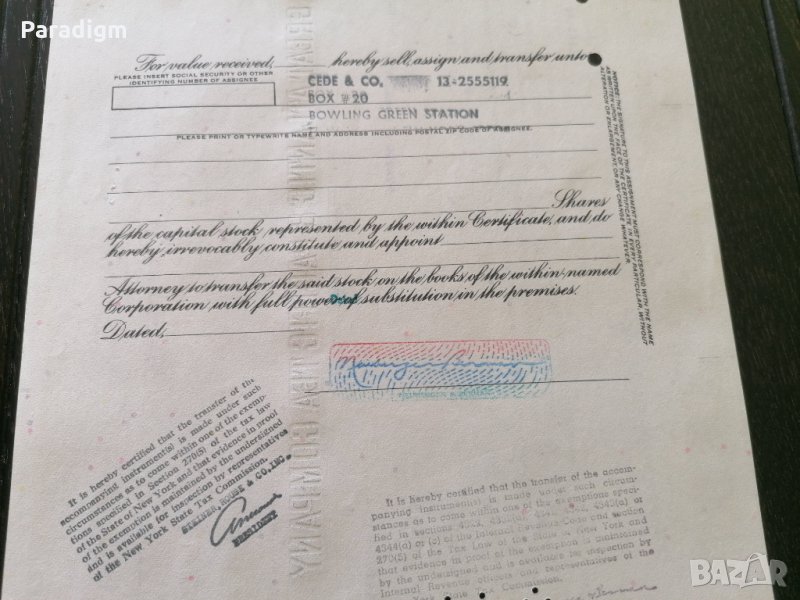 Paradigm
For value received, hereby sell, assign and transfer unto
PLEASE INSERT SOCIAL SECURITY OR OTHER
IDENTIFYING NUMBER OF ASSIGNEE
CEDE & CO. 13-2555119
BOX #20
BOWLING GREEN STATION
PLEASE PRINT OR TYPEWRITE NAME AND ADDRESS INCLUDING POSTAL ZIP CODE OF ASSIGNEE.
Shares
of the capital stock represented by the within Certificate, and do
hereby irrevocably constitute and appoint
Attorney to transfer the said stock on the books of the within named
Corporation with full power of substitution in the premises.
Dated,
NOTICE: THE SIGNATURE TO THIS ASSIGNMENT MUST CORRESPOND WITH THE NAME
AS WRITTEN UPON THE FACE OF THE CERTIFICATE IN EVERY PARTICULAR, WITHOUT
ALTERATION OR ENLARGEMENT OR ANY CHANGE WHATEVER.
It is hereby certified that the transfer of the
accompanying instrument(s) is made under such
circumstances as to come within one of the exemp-
tions specified in Section 270(5) of the tax law
of the State of New York and that evidence in proof
of the exemption is maintained by the undersigned
and is available for inspection by representatives
of the New York State Tax Commission.
ROUSE & CO. INC.
PRESIDENT
It is hereby certified that the transfer of the accom-
panying instrument(s) is made under such circum-
stances as to come within one of the exemptions speci-
fied in sections 4343(a) or
4344(a) or of the Internal Revenue Code and section
270(5) of the Tax Law of the State of New York and
that evidence in proof of the exemption is maintained
by the undersigned and is available for inspection by
Internal Revenue officers and representatives of the
York State Tax Commission.
COMPANY
BAZAR.bg